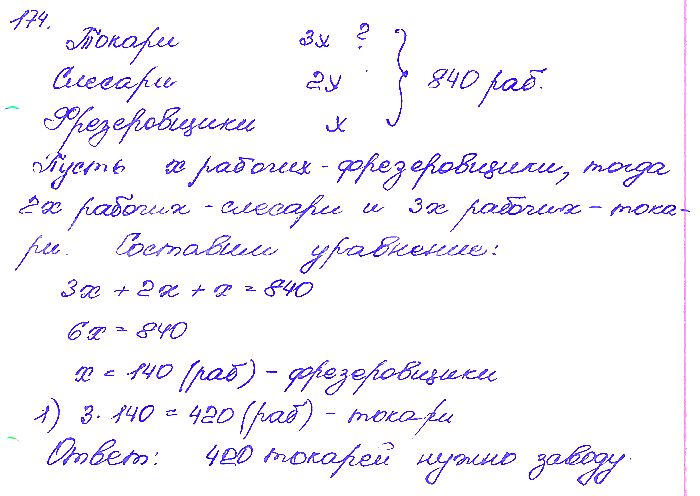 174.
Токари 3х ?
Слесари 2х } 840 раб.
Фрезеровщики х
Пусть х рабочих - фрезеровщики, тогда
2х рабочих - слесари и 3х рабочих - тока-
ри. Составим уравнение:
3х + 2х + х = 840
6х = 840
х = 140 (раб) - фрезеровщики
1) 3 · 140 = 420 (раб) - токари
Ответ: 420 токарей нужно заводу.